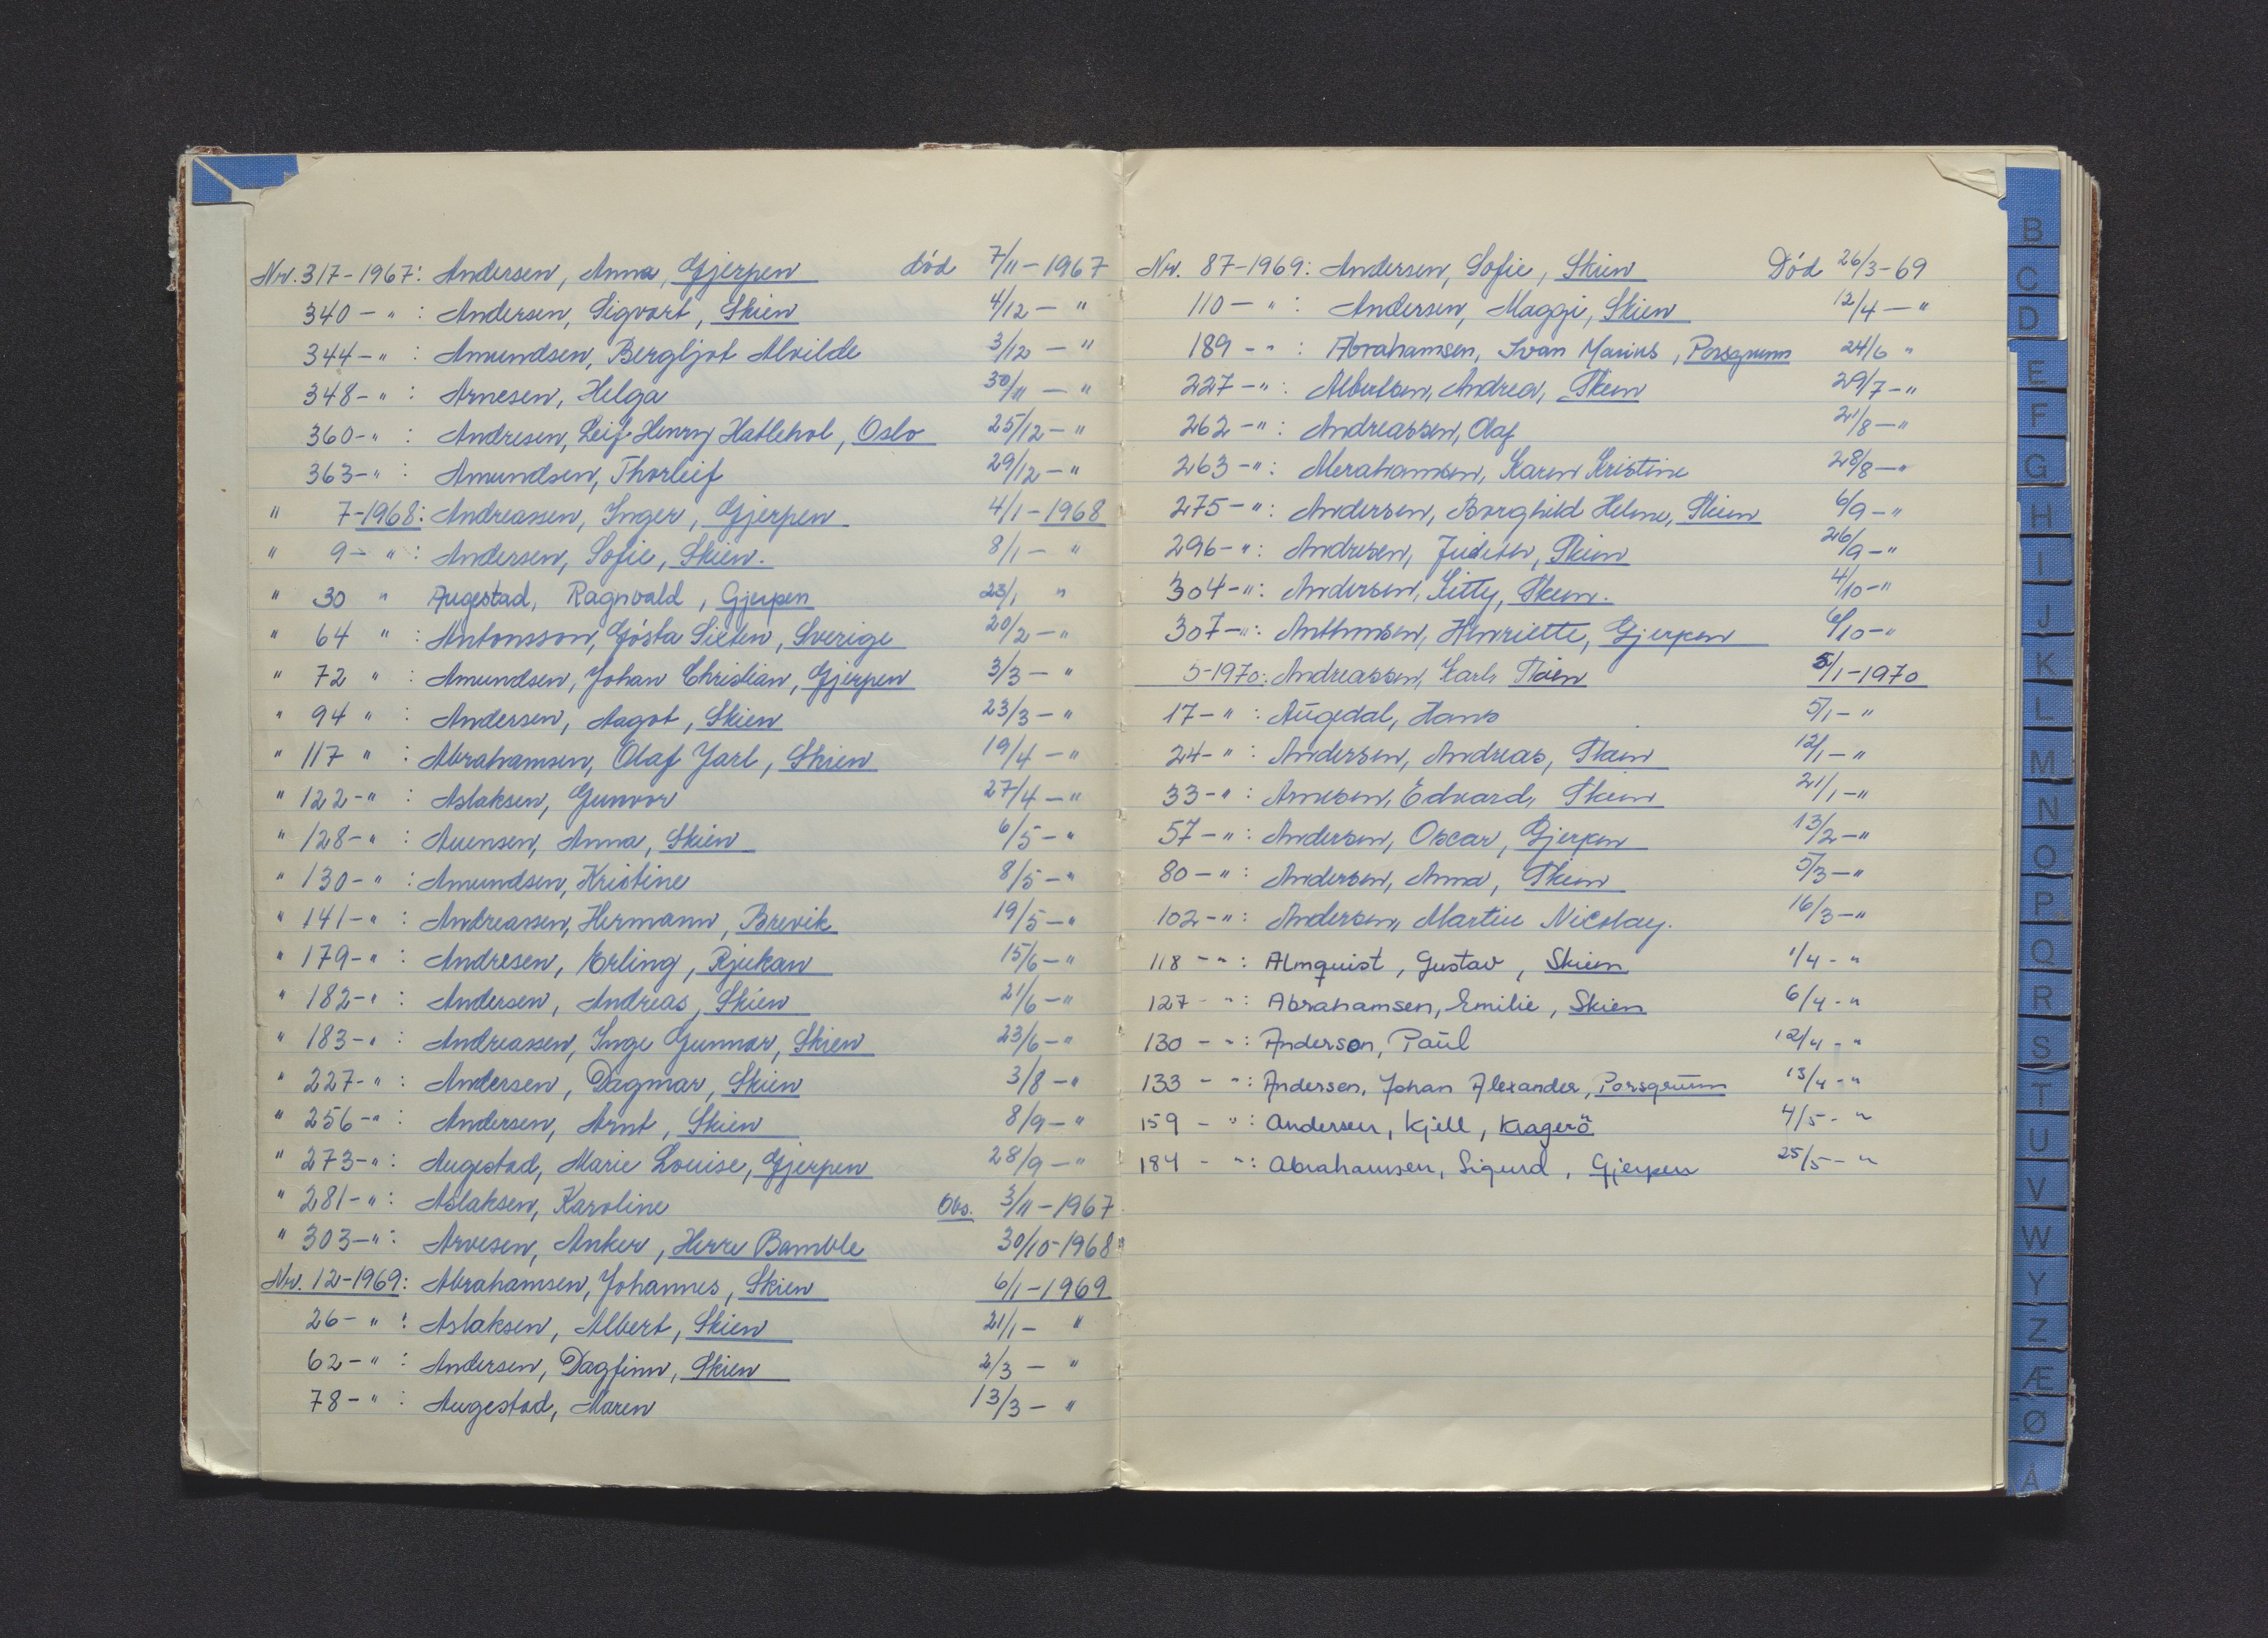 Nr. 317-1967: Andersen, Anna, Gjerpen død 7/11-1967
340 - " : Andersen, Sigvart, Skien 4/12 - "
344 - " : Amundsen, Bergljot Alvilde 3/12 - "
348 - " : Arnesen, Helga 30/11 - "
360 - " : Andresen, Leif Henry Hatlehol, Oslo 25/12 - "
363 - " : Amundsen, Thorleif 29/12 - "
" 7-1968: Andreassen, Inger, Gjerpen 4/1-1968
" 9 - " : Andersen, Sofie, Skien. 8/1 - "
" 30 " Augestad, Ragnvald, Gjerpen 23/1 "
" 64 " : Antonsson, Gösta Sixten, Sverige 20/2 - "
" 72 " : Amundsen, Johan Christian, Gjerpen 3/3 - "
" 94 " : Andersen, Aagot, Skien 23/3 - "
" 117 " : Abrahamsen, Olaf Jarl, Skien 19/4 - "
" 122 - " : Aslaksen, Gunvor 27/4 - "
" 128 - " : Auensen, Anna, Skien 6/5 - "
" 130 - " : Amundsen, Kristine 8/5 - "
" 141 - " : Andreassen, Hermann, Brevik 19/5 - "
" 179 - " : Andresen, Erling, Rjukan 15/6 - "
" 182 - " : Andersen, Andreas, Skien 21/6 - "
" 183 - " : Andreassen, Inge Gunnar, Skien 23/6 - "
" 227 - " : Andersen, Dagmar, Skien 3/8 - "
" 256 - " : Andersen, Arnt, Skien 8/9 - "
" 273 - " : Augestad, Marie Louise, Gjerpen 28/9 - "
" 281 - " : Aslaksen, Karoline Obs. 3/11-1967
" 303 - " : Arvesen, Anker, Herre Bamble 30/10-1968
Nr. 12-1969: Abrahamsen, Johannes, Skien 6/1-1969
26 - " : Aslaksen, Albert, Skien 21/1 - "
62 - " : Andersen, Dagfinn, Skien 2/3 - "
78 - " : Augestad, Maren 13/3 - "
Nr. 87-1969: Andersen, Sofie, Skien Død 26/3-69
110 - " : Andersen, Maggi, Skien 12/4 - "
189 - " : Abrahamsen, Ivan Marius, Porsgrunn 24/6 "
227 - " : Albertsen, Andrea, Skien 29/7 - "
262 - " : Andreassen, Olaf 21/8 - "
263 - " : Abrahamsen, Karen Kristine 28/8 - "
275 - " : Andersen, Borghild Helene, Skien 6/9 - "
296 - " : Andresen, Judith, Skien 26/9 - "
304 - " : Andersen, Kitty, Skien. 4/10 - "
307 - " : Anthonsen, Henriette, Gjerpen /10 - "
5-1970: Andreassen, Karl, Skien 5/1-1970
17 - " : Augedal, Hans 5/1 - "
24 - " : Andersen, Andreas, Skien 12/1 - "
33 - " : Arnesen, Edvard, Skien 21/1 - "
57 - " : Andersen, Oscar, Gjerpen 13/2 - "
80 - " : Andersen, Anna, Skien 5/3 - "
102 - " : Andersen, Martin Nicolay. 16/3 - "
118 - " : Almquist, Gustav, Skien 1/4 - "
127 - " : Abrahamsen, Emilie, Skien 6/4 - "
130 - " : Anderson, Paul 12/4 - "
133 - " : Andersen, Johan Alexander, Porsgrunn 13/4 - "
159 - " : Andersen, Kjell, Kragerö 4/5 - "
184 - " : Abrahamsen, Sigurd, Gjerpen 25/5 - "
B
C
D
E
F
G
H
I
J
K
L
M
N
O
P
Q
R
S
T
U
V
W
Y
Z
Æ
Ø
Å